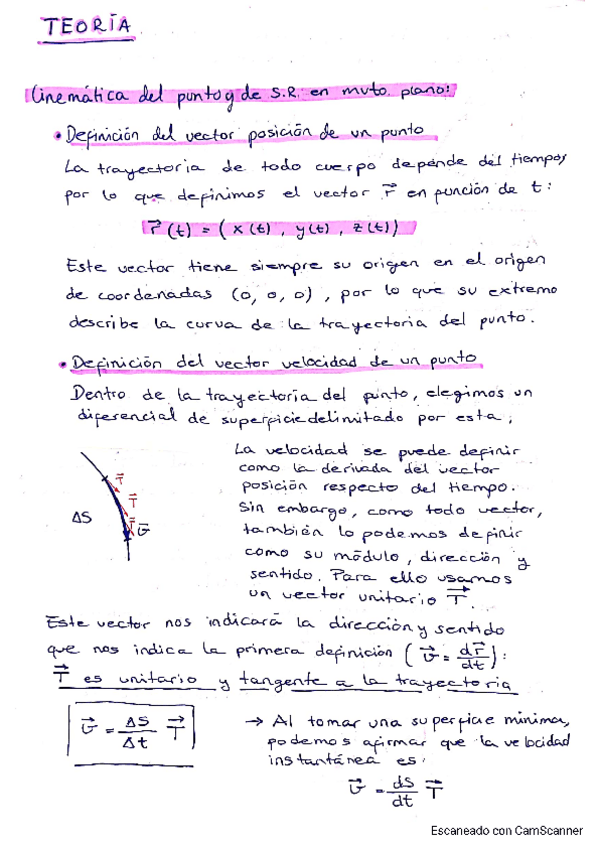 TEORÍA
Cinemática del punto y de S.R. en mvto. plano:
• Definición del vector posición de un punto
La trayectoria de todo cuerpo depende del tiempo,
por lo que definimos el vector r⃗ en función de t:
r⃗(t) = (x(t), y(t), z(t))
Este vector tiene siempre su origen en el origen
de coordenadas (0, 0, 0), por lo que su extremo
describe la curva de la trayectoria del punto.
• Definición del vector velocidad de un punto
Dentro de la trayectoria del punto, elegimos un
diferencial de superficie delimitado por esta;
ΔS
T⃗
T⃗
T⃗
v⃗
La velocidad se puede definir
como la derivada del vector
posición respecto del tiempo.
Sin embargo, como todo vector,
también lo podemos definir
como su módulo, dirección y
sentido. Para ello usamos
un vector unitario T⃗.
Este vector nos indicará la dirección y sentido
que nos indica la primera definición (v⃗ = dr⃗/dt):
T⃗ es unitario y tangente a la trayectoria
v⃗ = ΔS/Δt T⃗
→ Al tomar una superficie mínima,
podemos afirmar que la velocidad
instantánea es:
v⃗ = dS/dt T⃗
Escaneado con CamScanner